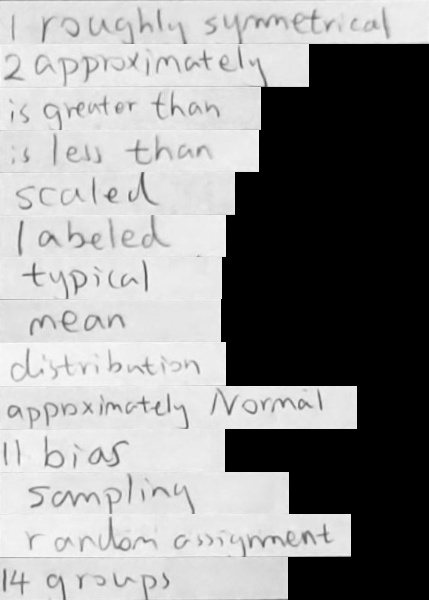 1 roughly symmetrical
2 approximately
is greater than
is less than
scaled
labeled
typical
mean
distribution
approximately Normal
11 bias
sampling
random assignment
14 groups